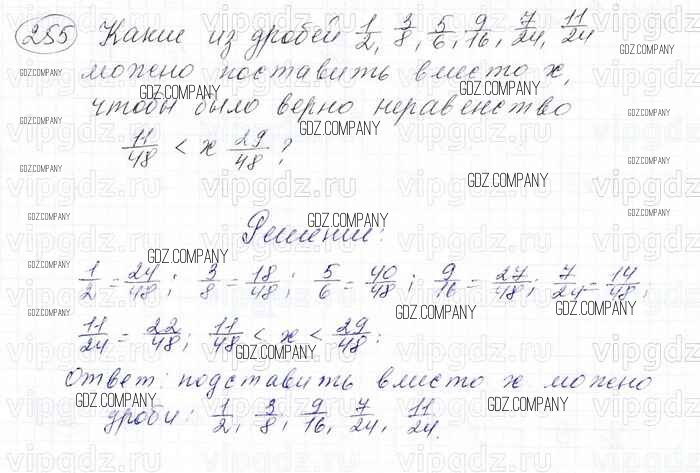 255 Какие из дробей 1/2, 3/8, 5/6, 9/16, 7/24, 11/24
можно поставить вместо x,
чтобы было верно неравенство
11/48 < x 29/48?
Решение:
1/2 = 24/48; 3/8 = 18/48; 5/6 = 40/48; 9/16 = 27/48; 7/24 = 14/48;
11/24 = 22/48; 11/48 < x < 29/48:
Ответ: подставить вместо x можно
дроби: 1/2, 3/8, 9/16, 7/24, 11/24.
GDZ.COMPANY
vipgdz.ru